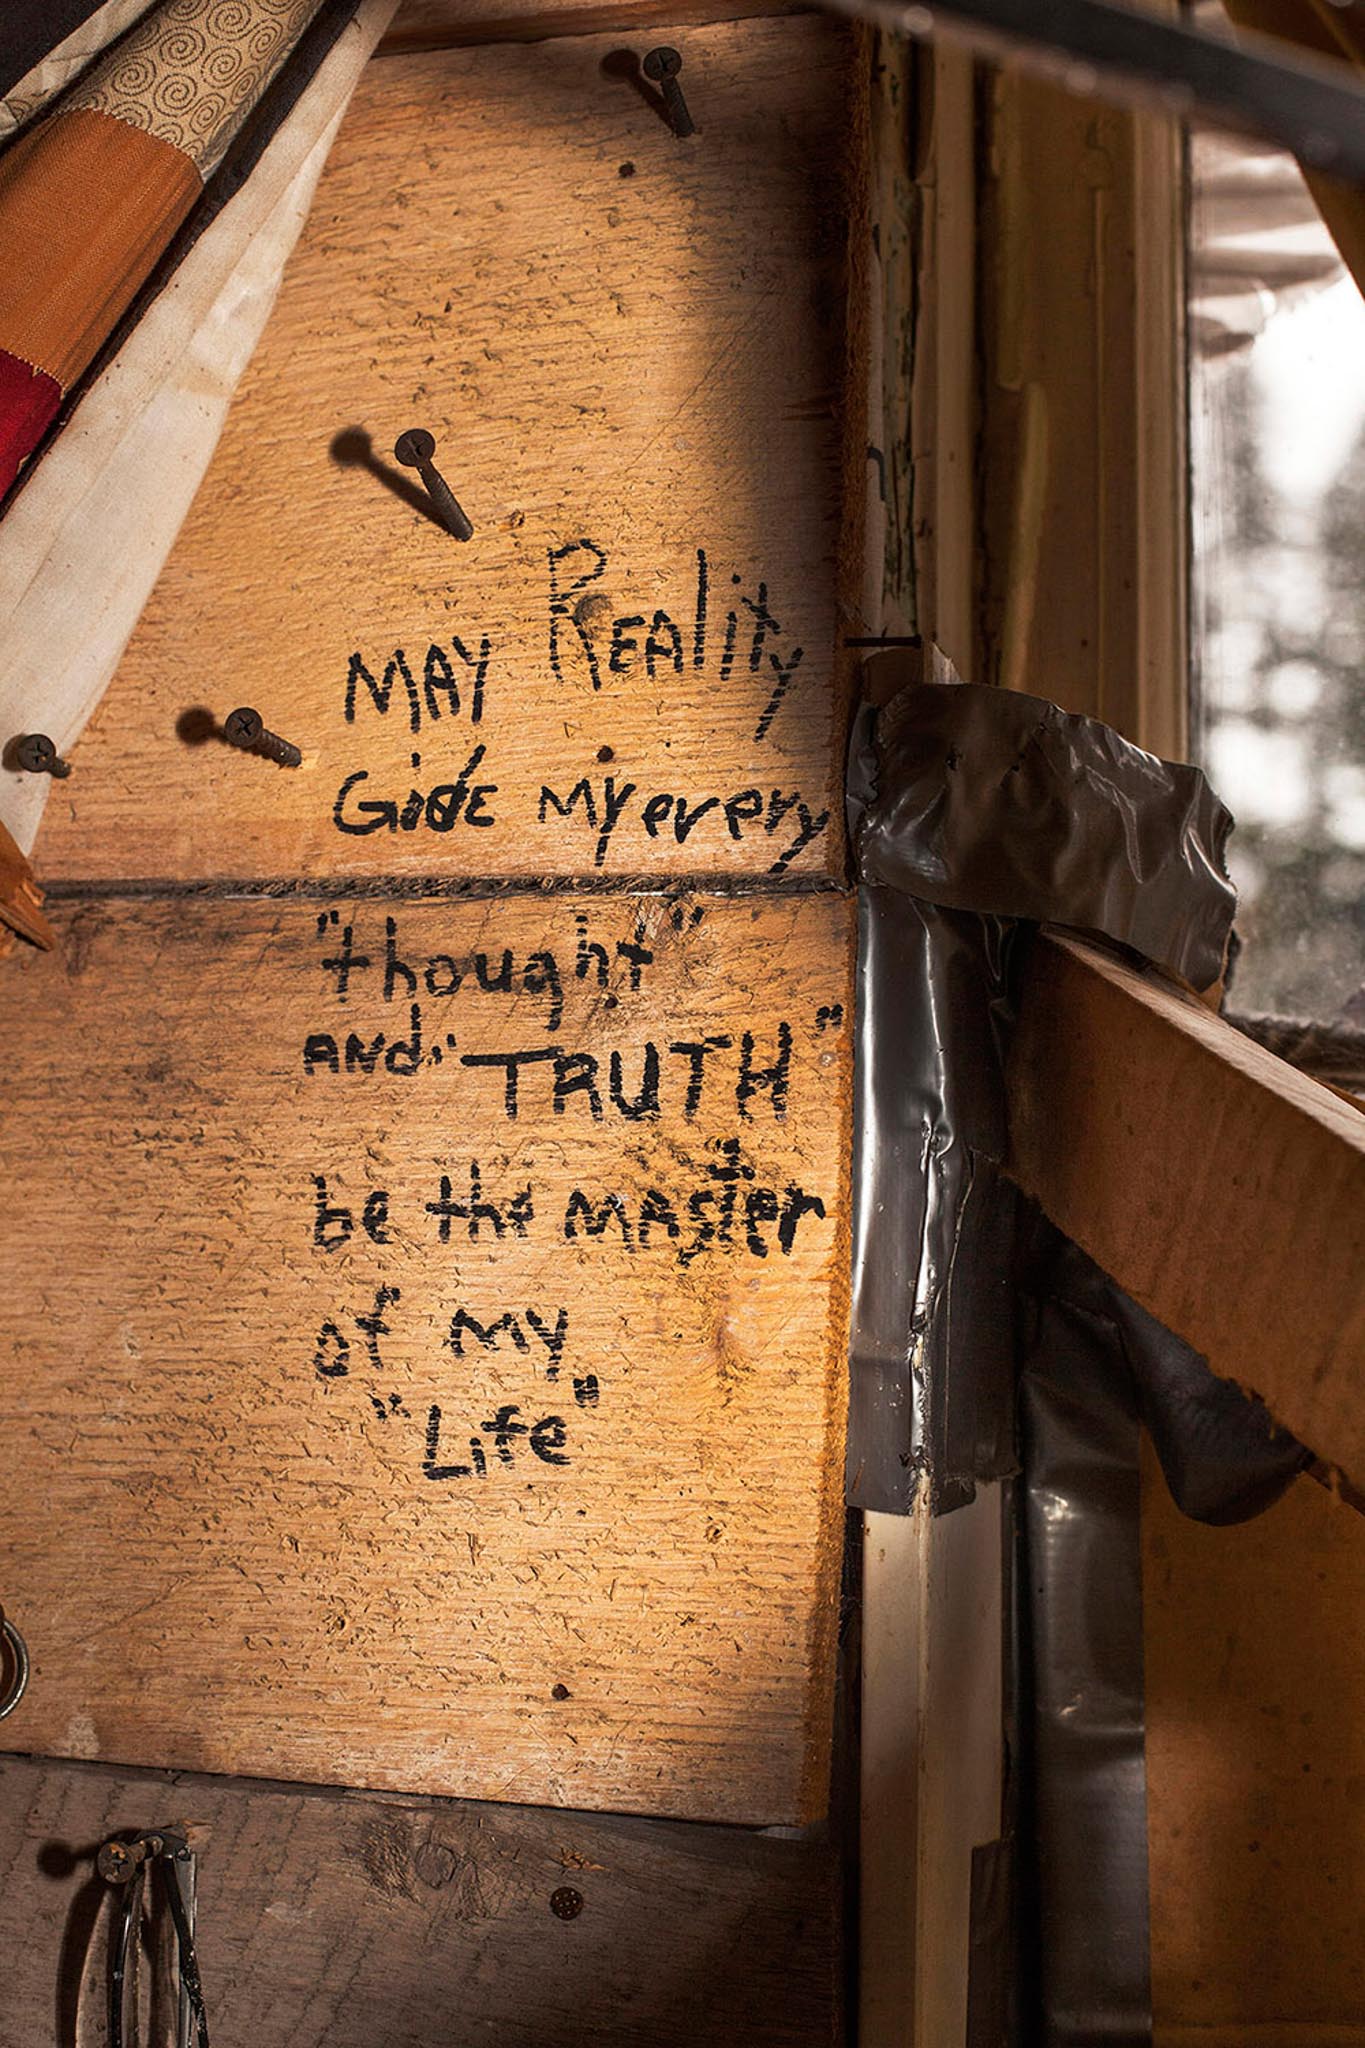 MAY Reality
Gide my every
"thought"
AND "TRUTH"
be the master
of my
"Life"